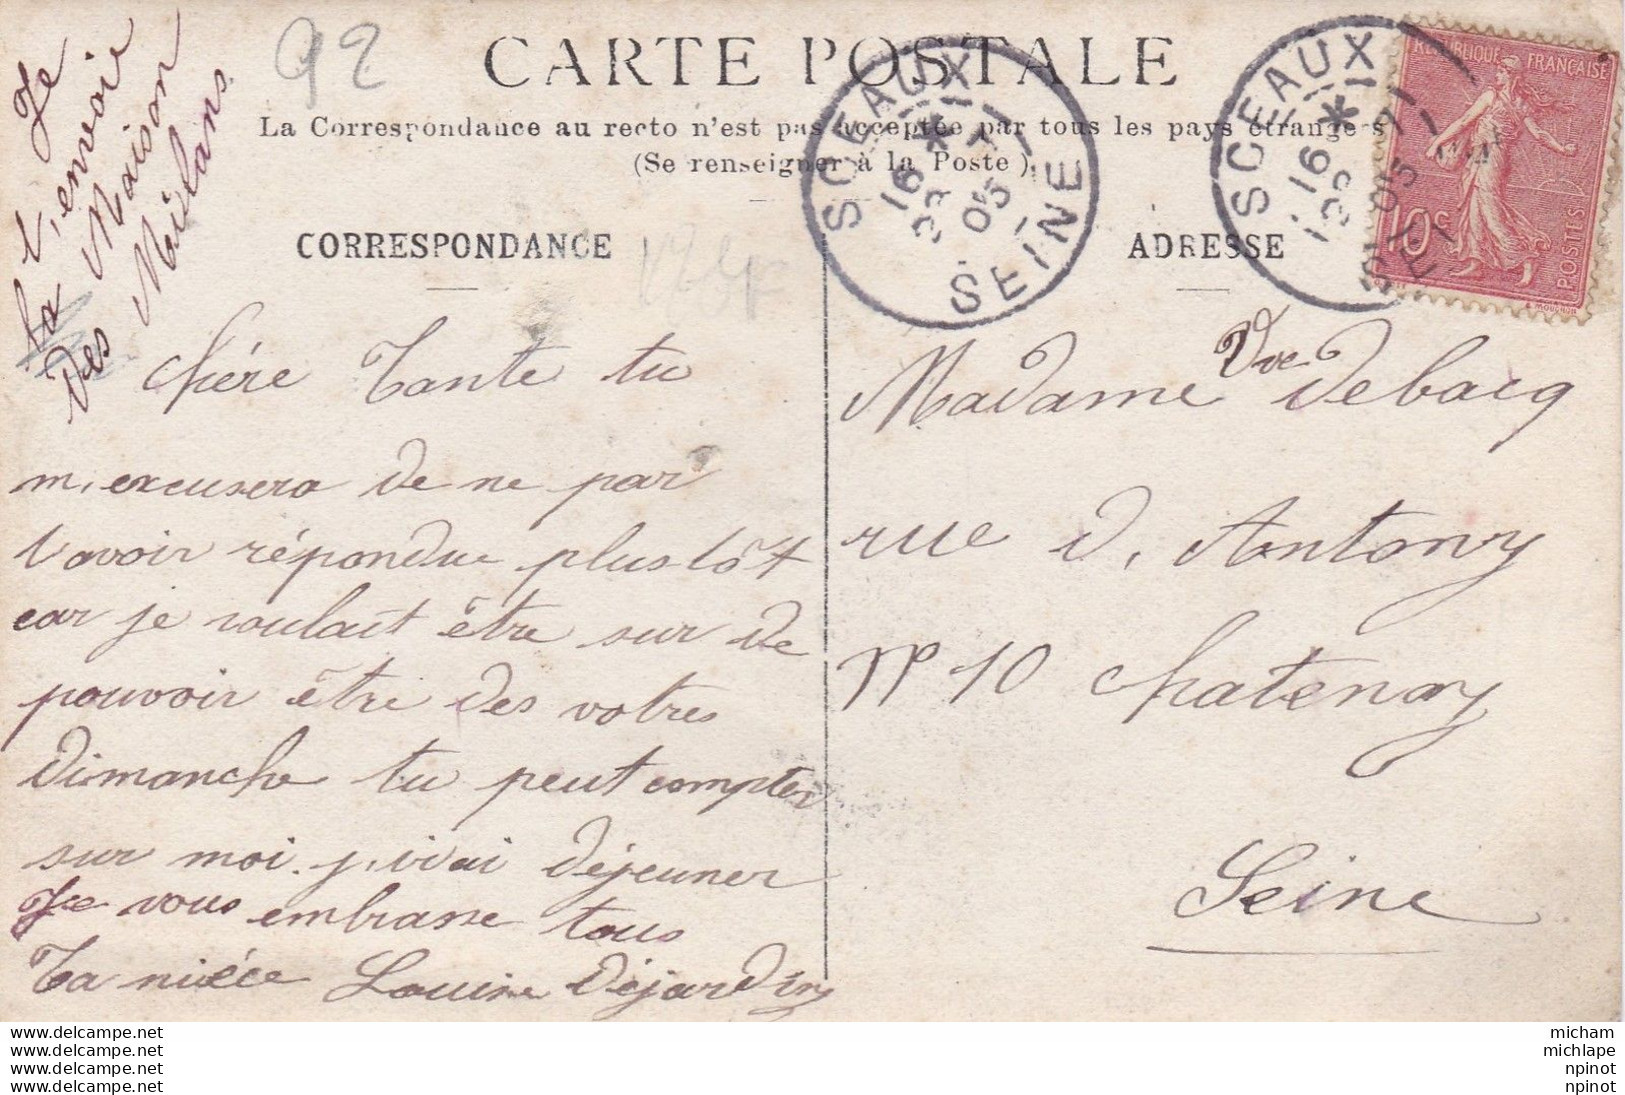 Je
t, envoie
la Maison
des Milans
92
CARTE POSTALE
La Correspondance au recto n'est pas acceptée par tous les pays étrangers
(Se renseigner à la Poste)
CORRESPONDANCE
chére Tante tu
m, excusera de ne par
t'avoir répondue plus tôt
car je voulait être sur de
pouvoir être des votres
dimanche tu peut compter
sur moi. j, irai déjeuner
Je vous embrasse tous
Ta niéce Louise Déjardins
ADRESSE
Madame Vve Debacq
rue d, Antony
N° 10 chatenay
Seine
SCEAUX
16 *
23 7
05
SEINE
SCEAUX
16 *
23 7
05
REPUBLIQUE FRANÇAISE
10c
POSTES
www.delcampe.net
www.delcampe.net
www.delcampe.net
www.delcampe.net
micham
michlape
npinot
npinot